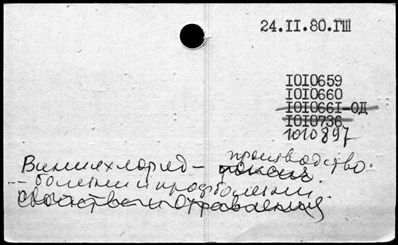 24.II.80.ГШ
IOI0659
IOI0660
IOI066I-ОД
IOI0736
1010897
Винилхлорид - производство.
- болезни и профболезни.
свойства и отравления